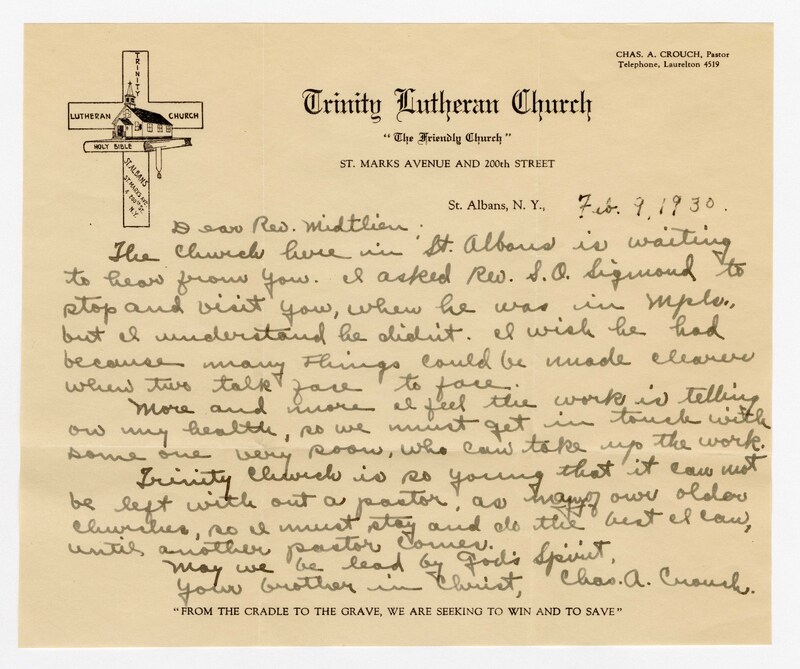 CHAS. A. CROUCH, Pastor
Telephone, Laurelton 4519
TRINITY
LUTHERAN CHURCH
HOLY BIBLE
ST. ALBANS
ST. MARKS AVE.
& 200TH ST.
N.Y.
Trinity Lutheran Church
"The Friendly Church"
ST. MARKS AVENUE AND 200th STREET
St. Albans, N. Y., Feb. 9, 1930.
Dear Rev. Midtlien,
The Church here in St. Albans is waiting
to hear from you. I asked Rev. S. O. Sigmond to
stop and visit you, when he was in Mpls.,
but I understand he didn't. I wish he had
because many things could be made clearer
when two talk fase to face.
More and more I feel the work is telling
on my health, so we must get in touch with
some one very soon, who can take up the work.
Trinity Church is so young that it can not
be left with out a pastor, as many of our older
churches, so I must stay and do the best I can,
until another pastor comes.
May we be lead by God's Spirit,
Your brother in Christ, Chas. A. Crouch.
"FROM THE CRADLE TO THE GRAVE, WE ARE SEEKING TO WIN AND TO SAVE"